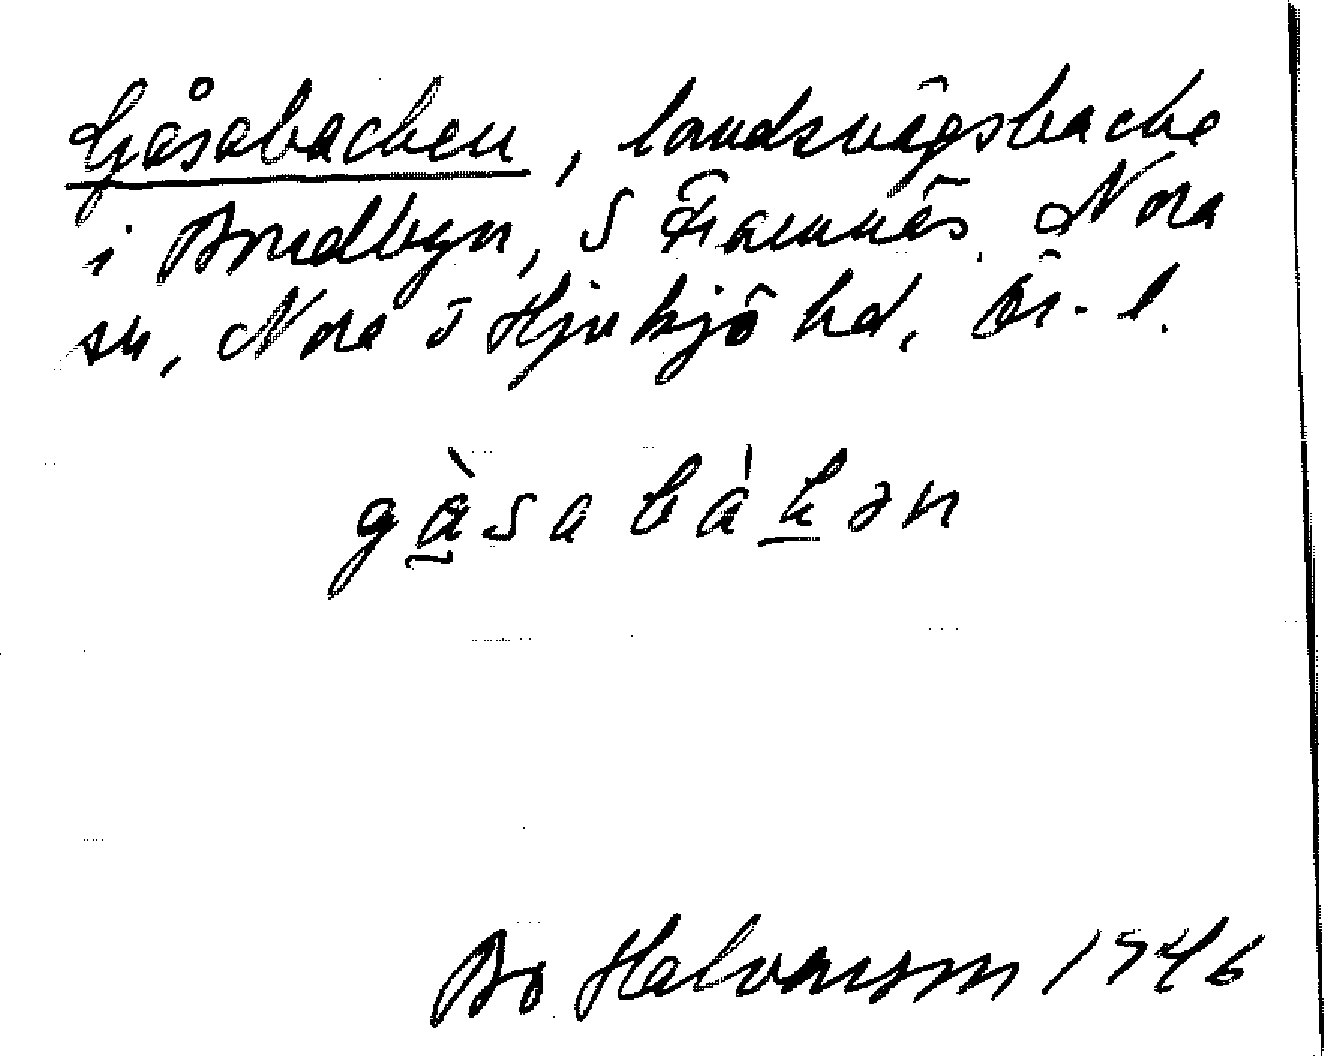 Gåsabacken, landsvägsbacke
i Bredbyn, S Framnäs, Nora
sn, Nora o Hjukjö hd, Ör. l.
gàsabákən
Bo Halvarson 1946